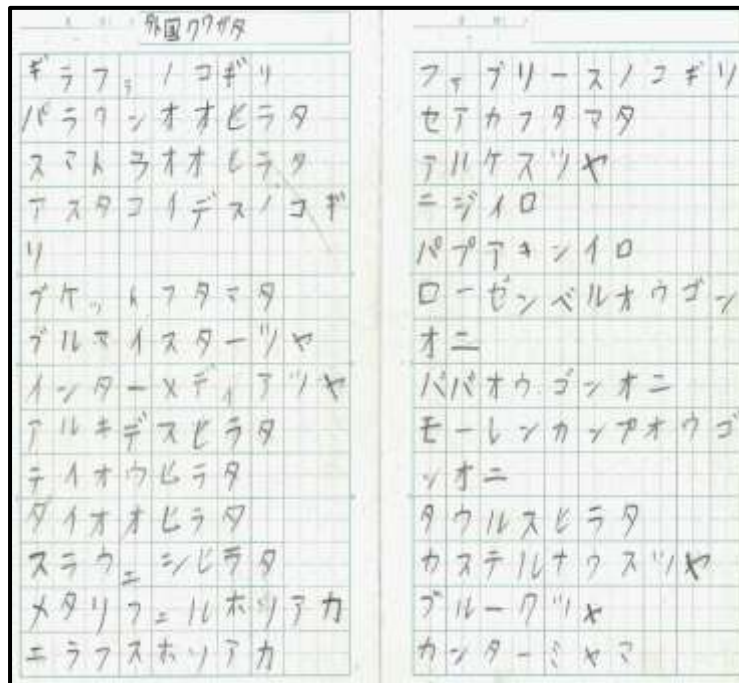 外国クワガタ
ギラファノコギリ
パラワンオオヒラタ
スマトラオオヒラタ
アスタコイデスノコギ
リ
ブケットフタマタ
ブルマイスターツヤ
インターメディアツヤ
アルキデスヒラタ
テイオウヒラタ
ダイオオヒラタ
スラウェシヒラタ
メタリフェルホソアカ
エラフスホソアカ
ファブリースノコギリ
セアカフタマタ
アルケスツヤ
ニジイロ
パプアキンイロ
ローゼンベルオウゴン
オニ
ババオウゴンオニ
モーレンカンプオウゴ
ンオニ
タウルスヒラタ
カステルナウスツヤ
ブルークツヤ
カンターミヤマ